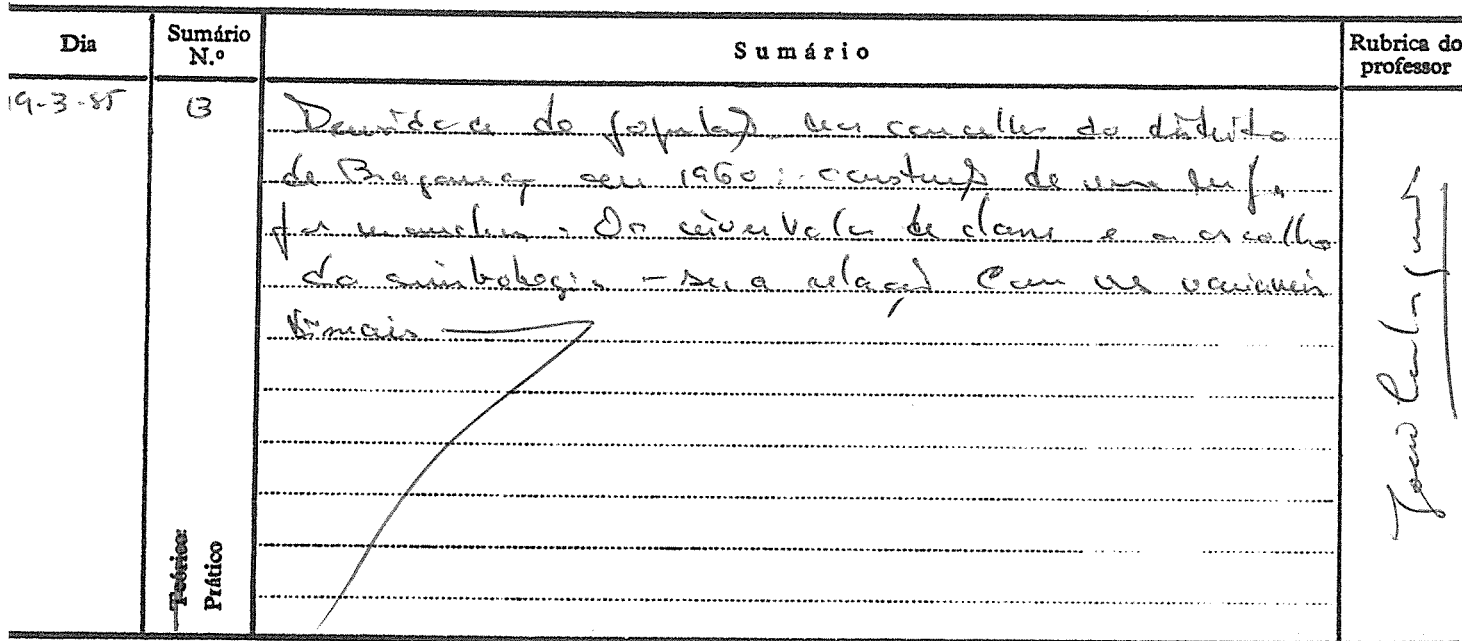 Dia
Sumário N.º
Sumário
Rubrica do professor
19-3-85
13
Densidade da população nos concelhos do distrito
de Bragança em 1960: construção de um mapa
por manchas. Os intervalos de classe e a escolha
da simbologia – sua relação com as variáveis
visuais
Teórico:
Prático
João Carlos